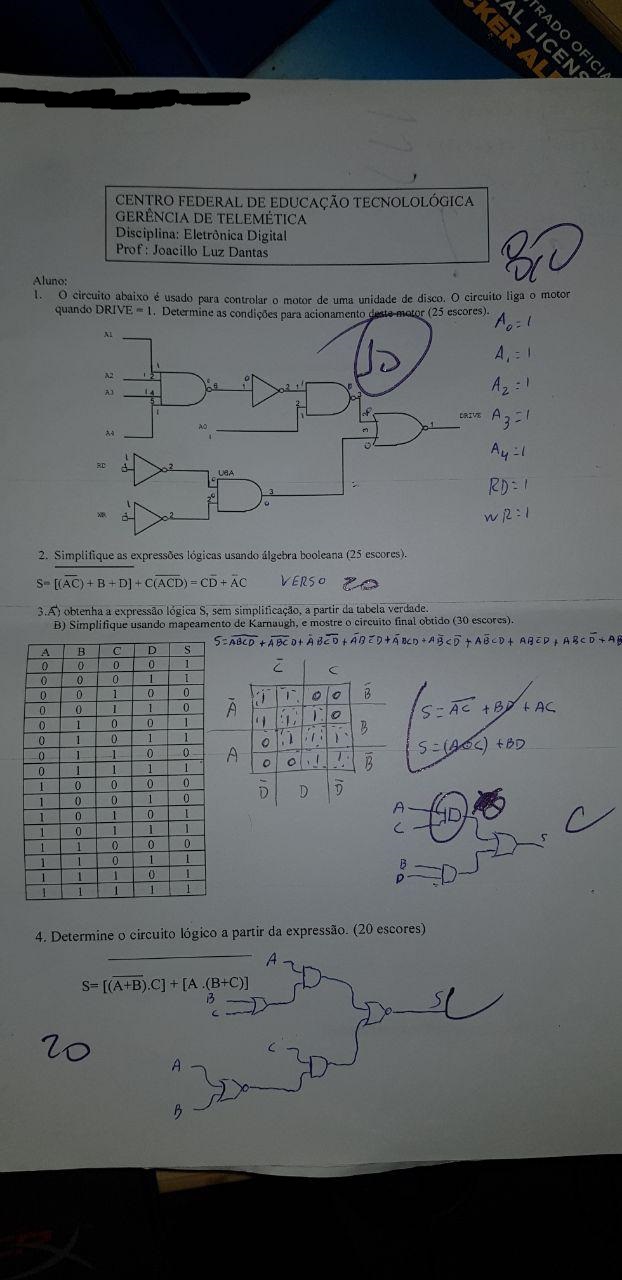 TRADO OFICIA
AL LICENS
CKER AL
CENTRO FEDERAL DE EDUCAÇÃO TECNOLOLÓGICA
GERÊNCIA DE TELEMÉTICA
Disciplina: Eletrônica Digital
Prof : Joacillo Luz Dantas
Aluno:
1. O circuito abaixo é usado para controlar o motor de uma unidade de disco. O circuito liga o motor
quando DRIVE = 1. Determine as condições para acionamento deste motor (25 escores).
A0=1
A1=1
A2=1
A3=1
A4=1
RD=1
WR=1
10
A1
A2
A3
A4
A0
RD
WR
U8A
DRIVE
2. Simplifique as expressões lógicas usando álgebra booleana (25 escores).
S= [(A̅C̅) + B + D] + C(A̅C̅D̅) = CD̅ + A̅C VERSO 20
3.A) obtenha a expressão lógica S, sem simplificação, a partir da tabela verdade.
B) Simplifique usando mapeamento de Karnaugh, e mostre o circuito final obtido (30 escores).
A B C D S
0 0 0 0 1
0 0 0 1 1
0 0 1 0 0
0 0 1 1 0
0 1 0 0 1
0 1 0 1 1
0 1 1 0 0
0 1 1 1 1
1 0 0 0 0
1 0 0 1 0
1 0 1 0 1
1 0 1 1 1
1 1 0 0 0
1 1 0 1 1
1 1 1 0 1
1 1 1 1 1
C̅ C
A̅ 1 1 0 0 B̅
1 1 1 0 B
A 0 1 1 1
0 0 1 1 B̅
D̅ D D̅
S = A̅C̅ + BD + AC
S = (A⊙C) + BD
A
C
B
D
S
C
4. Determine o circuito lógico a partir da expressão. (20 escores)
S= [(A̅+̅B̅).C] + [A .(B+C)]
A
B
C
S
C
A
B
C
20